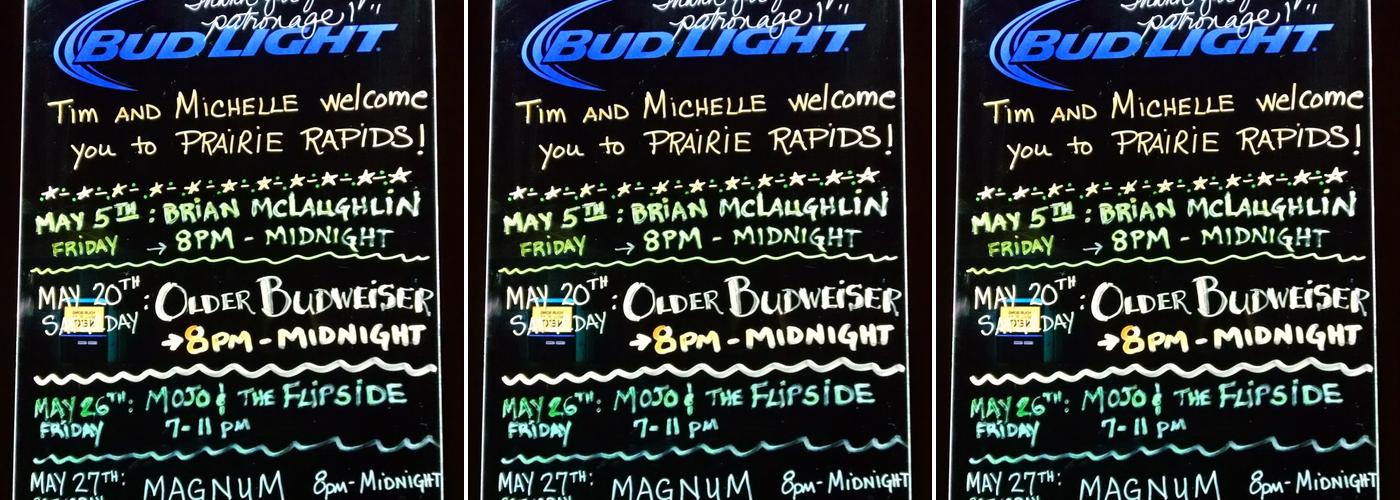 patronage!
BUD LIGHT
Tim AND MiCHELLE welcome
you to PRAiRiE RAPiDS!
MAY 5TH : BRiAN McLAUGHLiN
FRiDAY → 8PM - MIDNIGHT
MAY 20TH : OLDER BUDWEiSER
→ 8PM - MIDNIGHT
MAY 26TH: MOJO & THE FLiPSiDE
FRiDAY 7-11 PM
MAY 27TH: MAGNUM 8pm-MiDNiGHT
patronage!
BUD LIGHT
Tim AND MiCHELLE welcome
you to PRAiRiE RAPiDS!
MAY 5TH : BRiAN McLAUGHLiN
FRiDAY → 8PM - MIDNIGHT
MAY 20TH : OLDER BUDWEiSER
→ 8PM - MIDNIGHT
MAY 26TH: MOJO & THE FLiPSiDE
FRiDAY 7-11 PM
MAY 27TH: MAGNUM 8pm-MiDNiGHT
patronage!
BUD LIGHT
Tim AND MiCHELLE welcome
you to PRAiRiE RAPiDS!
MAY 5TH : BRiAN McLAUGHLiN
FRiDAY → 8PM - MIDNIGHT
MAY 20TH : OLDER BUDWEiSER
→ 8PM - MIDNIGHT
MAY 26TH: MOJO & THE FLiPSiDE
FRiDAY 7-11 PM
MAY 27TH: MAGNUM 8pm-MiDNiGHT